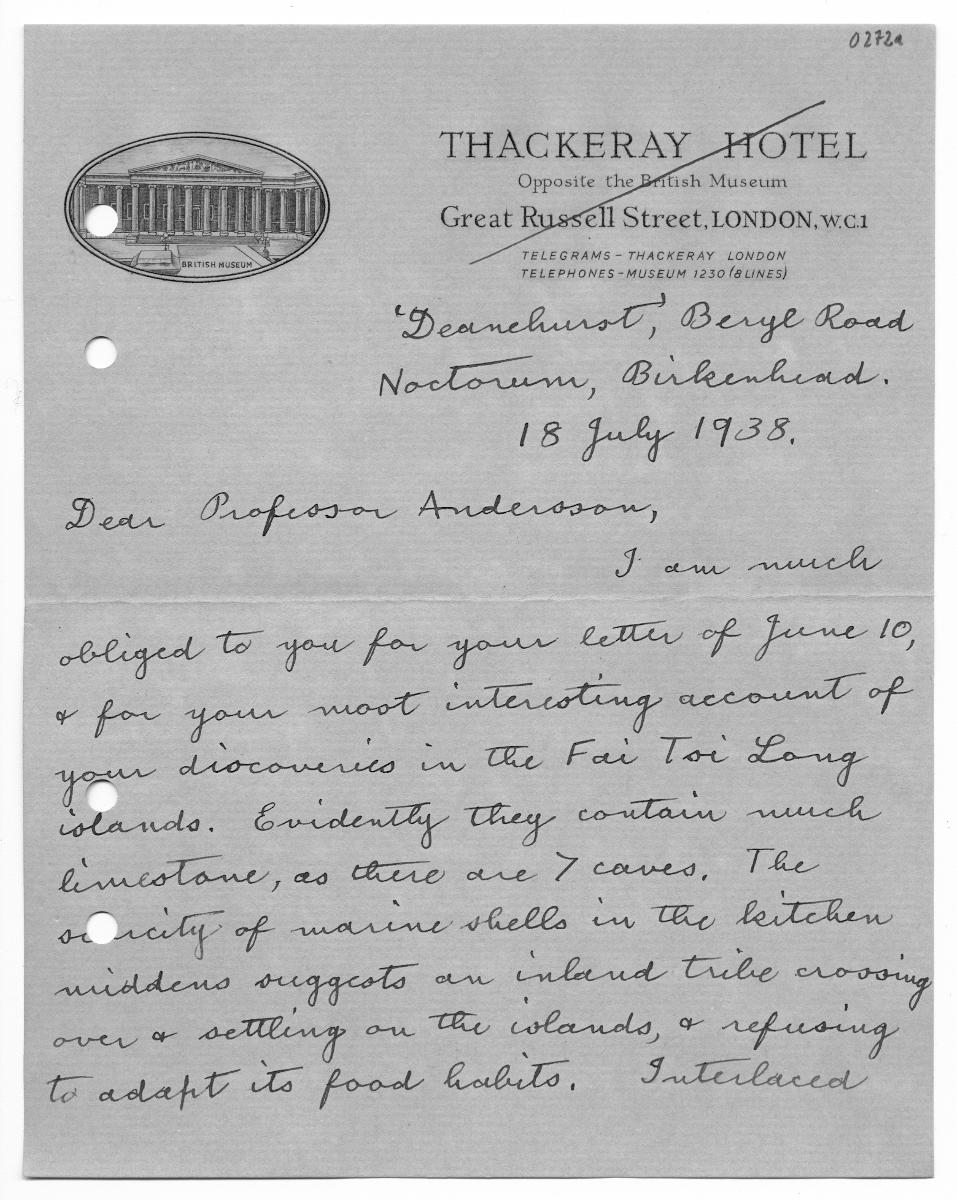 0272a
THACKERAY HOTEL
Opposite the British Museum
Great Russell Street, LONDON, W.C.1
TELEGRAMS - THACKERAY LONDON
TELEPHONES - MUSEUM 1230 (8 LINES)
BRITISH MUSEUM
'Deanehurst', Beryl Road
Noctorum, Birkenhead.
18 July 1938.
Dear Professor Andersson,
I am much
obliged to you for your letter of June 10,
& for your most interesting account of
your discoveries in the Fai Tsi Long
islands. Evidently they contain much
limestone, as there are 7 caves. The
scarcity of marine shells in the kitchen
middens suggests an inland tribe crossing
over & settling on the islands, & refusing
to adapt its food habits. Interlaced